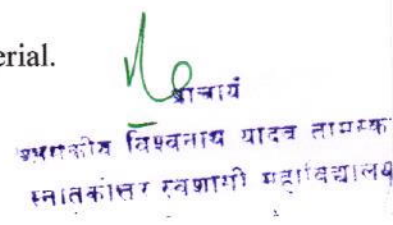 erial.
प्राचार्य
शासकीय विश्वनाथ यादव तामस्क
स्नातकोत्तर स्वशासी महाविद्यालय